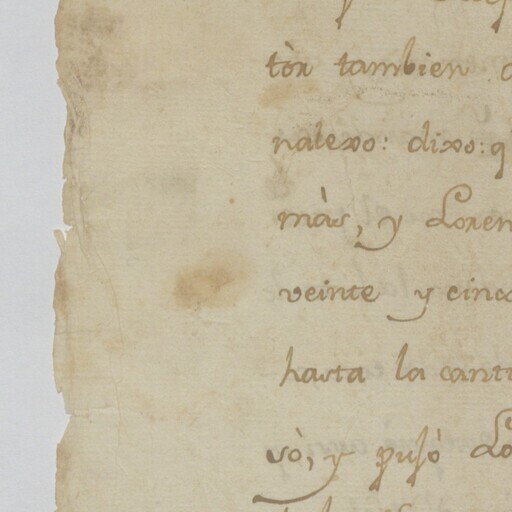 tòr tambien
nalexo: dixo: q
màs, y Loren
veinte y cinco
hasta la canti
sò, y pusò Lo